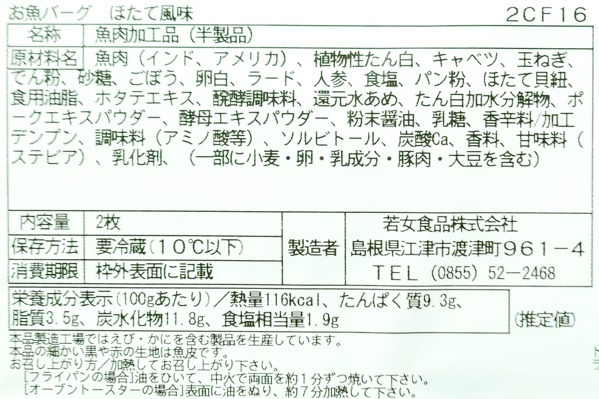 お魚バーグ ほたて風味 2CF16
名称 魚肉加工品(半製品)
原材料名 魚肉(インド、アメリカ)、植物性たん白、キャベツ、玉ねぎ、
でん粉、砂糖、ごぼう、卵白、ラード、人参、食塩、パン粉、ほたて貝紐、
食用油脂、ホタテエキス、醗酵調味料、還元水あめ、たん白加水分解物、ポ
ークエキスパウダー、酵母エキスパウダー、粉末醤油、乳糖、香辛料/加工
デンプン、調味料(アミノ酸等)、ソルビトール、炭酸Ca、香料、甘味料(
ステビア)、乳化剤、(一部に小麦・卵・乳成分・豚肉・大豆を含む)
内容量 2枚
保存方法 要冷蔵(10℃以下)
消費期限 枠外表面に記載
製造者
若女食品株式会社
島根県江津市渡津町961-4
TEL (0855) 52-2468
栄養成分表示(100gあたり)/熱量116kcal、たんぱく質9.3g、
脂質3.5g、炭水化物11.8g、食塩相当量1.9g
(推定値)
本品製造工場ではえび・かにを含む製品を生産しています。
本品の細かい黒や赤の生地は魚皮です。
お召し上がり方/加熱してお召し上がり下さい。
[フライパンの場合]油をひいて、中火で両面を約1分ずつ焼いて下さい。
[オーブントースターの場合]表面に油をぬり、約7分加熱して下さい。